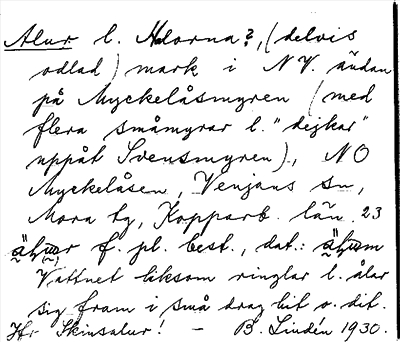 Alur l. Alorna?, (delvis
odlad) mark i NV. ändan
på Myckelåsmyren (med
flera småmyrar l. "dejkar"
uppåt Svensmyren), NO
Myckelåsen, Venjans sn,
Mora tg, Kopparb. län. 23
f. pl. best., dat.:
Vattnet liksom ringlar l. ålar
sig fram i små drag hit o. dit.
Jfr Skinsalur! – B. Lindén 1930.